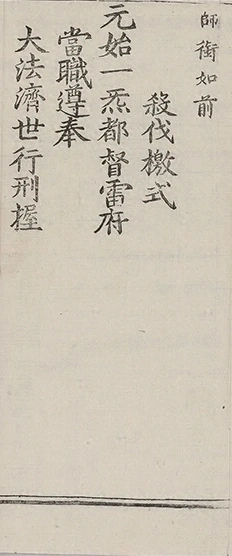 師銜如前
殺伐檄式
元始一炁都督雷府
當職遵奉
大法濟世行刑握